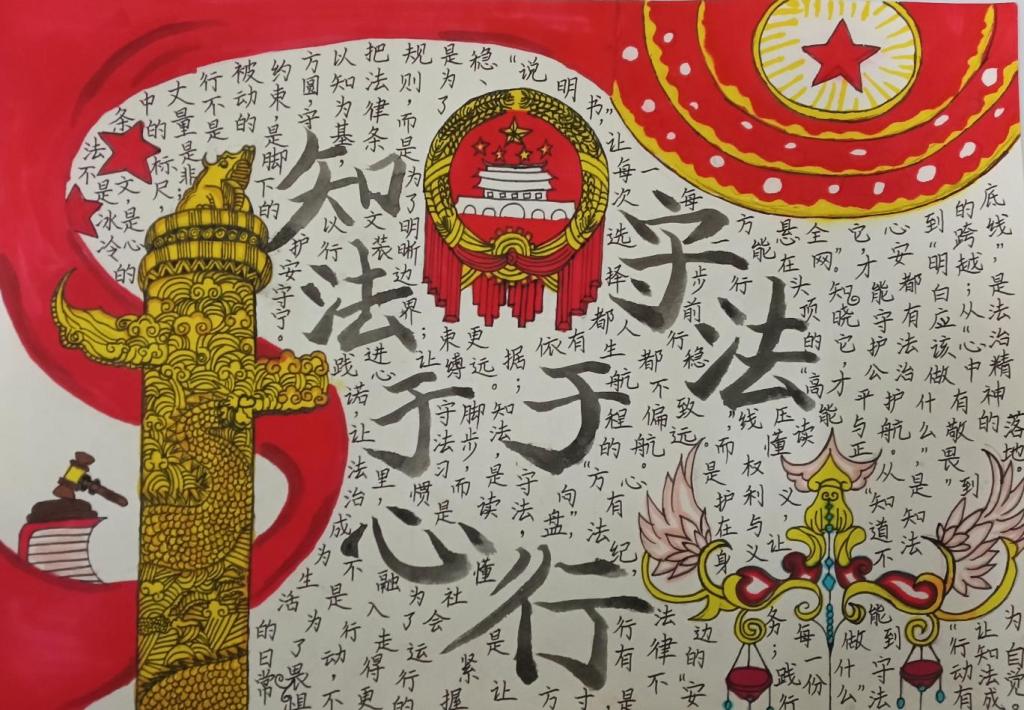 知法于心
守法于行
法不是冰冷的
条文,是心
中的标尺
丈量是非;
行不是
被动的
约束,是脚下的
方圆,守护安宁。
以知为基,以行践诺,让法治成为生活的日常
把法律条文装进心里,不是为了畏惧
规则,而是为了明晰边界;让守法习惯融入行动,不
是为了束缚脚步,而是为了走得更
稳、更远。知法,是读懂社会运行的
“说明书”,让每次选择都有依据;守法,是紧握
人生航程的“方向盘”,让
每一步都不偏航。心有法纪,行有方寸,
每一步前行
方能行稳致远。法律不是
悬在头顶的“高压线”,而是护在身边的“安
全网。知晓它,才能读懂权利与义务;践行
它,才能守护公平与正义 让每一份
心安都有法治护航。从“知道不能做什么”
到“明白应该做什么”,是知法到守法
的跨越;从“心中有敬畏”到“行动有
底线”,是法治精神的落地。让知法成为自觉